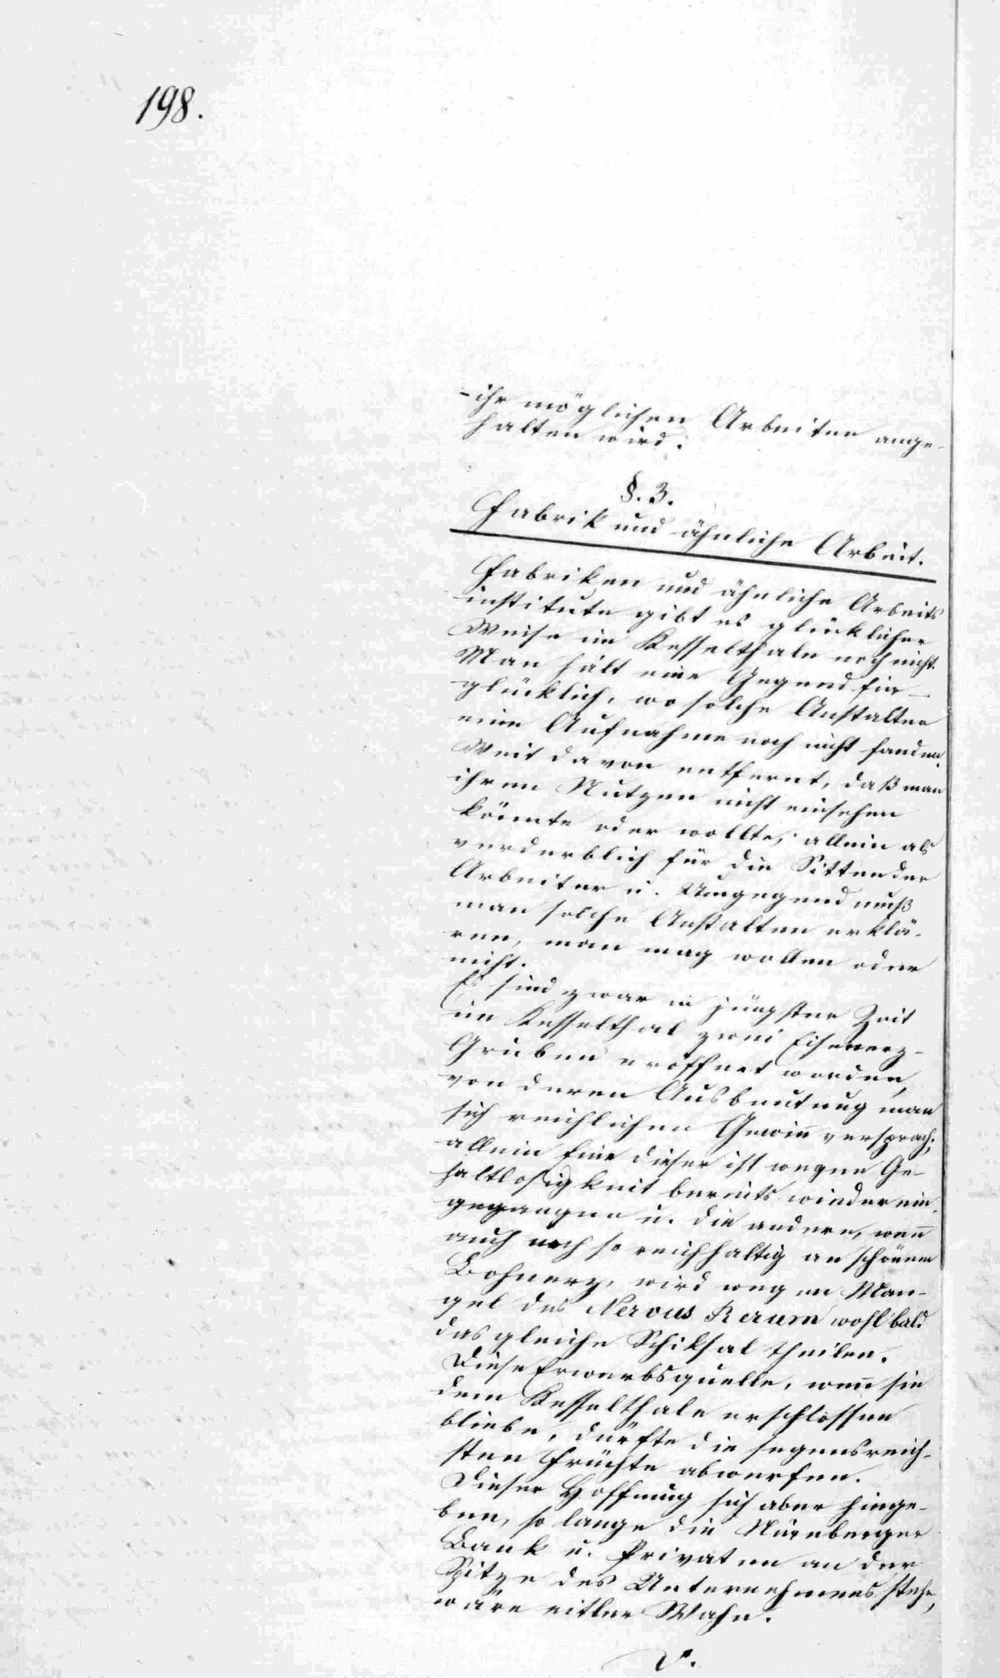 198.
-ihr möglichen Arbeiten ange-
halten wird.
§. 3.
Fabrik und ähnliche Arbeit.
Fabriken und ähnliche Arbeits
institute gibt es glücklicher
Weise im Kesselthale noch nicht.
Man hält eine Gegend für
glücklich, wo solche Anstalten
eine Aufnahme noch nicht fanden.
Weit davon entfernt, daß man
ihren Nutzen nicht einsehen
könnte oder wollte; allein als
verderblich für die Sitten der
Arbeiter u. Umgegend muß
man solche Anstalten erklä-
ren, man mag wollen oder
nicht.
Es sind zwar in jüngster Zeit
im Kesselthal zwei Eisenerz-
Gruben eröffnet worden,
von deren Ausbeutung man
sich reichlichen Gewinn versprach;
allein Eine dieser ist wegen Ge-
haltlosigkeit bereits wieder ein-
gegangen u. die andere, wenn
auch noch so reichhaltig an schönem
Bohnerz, wird wegen Man-
gel des Nervus Rerum wohl bald
das gleiche Schiksal theilen.
Diese Erwerbsquelle, wenn sie
dem Kesselthale erschlossen
bliebe, dürfte die segensreich-
sten Früchte abwerfen.
Dieser Hoffnung sich aber hinge-
ben, so lange die Nürnberger
Bank u. Privaten an der
Spitze des Unternehmens stehe,
wäre eitler Wahn.
V.